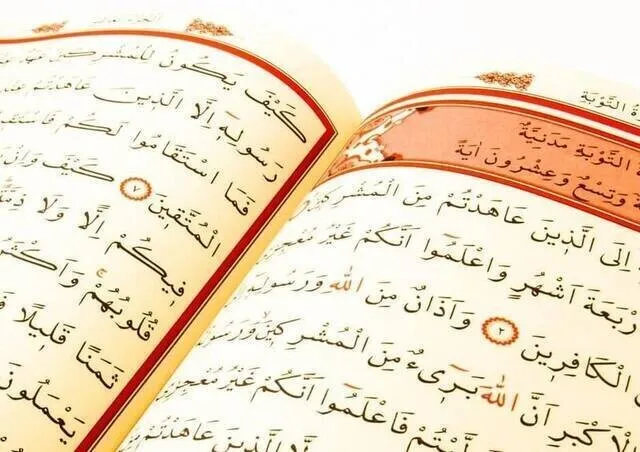 التَّوْبَة
التَّوْبَةِ مَدَنِيَّةٌ
وَتِسْعٌ وَعِشْرُونَ اٰيَةً
اِلَى الَّذٖينَ عَاهَدْتُمْ مِنَ الْمُشْرِكٖينَ
اَرْبَعَةَ اَشْهُرٍ وَاعْلَمُٓوا اَنَّكُمْ غَيْرُ مُعْجِزِي
الْكَافِرٖينَ ٢ وَاَذَانٌ مِنَ اللّٰهِ وَرَسُولِهٖٓ
الْاَكْبَرِ اَنَّ اللّٰهَ بَرٖٓيءٌ مِنَ الْمُشْرِكٖينَ وَرَسُولُهُ
فَاعْلَمُٓوا اَنَّكُمْ غَيْرُ مُعْجِزِي
الَّذٖينَ عَاهَدْتُمْ
كَيْفَ يَكُونُ لِلْمُشْرِكٖينَ عَهْدٌ
رَسُولِهٖٓ اِلَّا الَّذٖينَ عَاهَدْتُمْ عِنْدَ
فَمَا اسْتَقَامُوا لَكُمْ فَاسْتَقٖيمُوا
الْمُتَّقٖينَ ٧ كَيْفَ وَاِنْ
فٖيكُمْ اِلًّا وَلَا ذِمَّةً
قُلُوبُهُمْ وَاَكْثَرُ
ثَمَنًا قَلٖيلًا
يَعْمَلُونَ